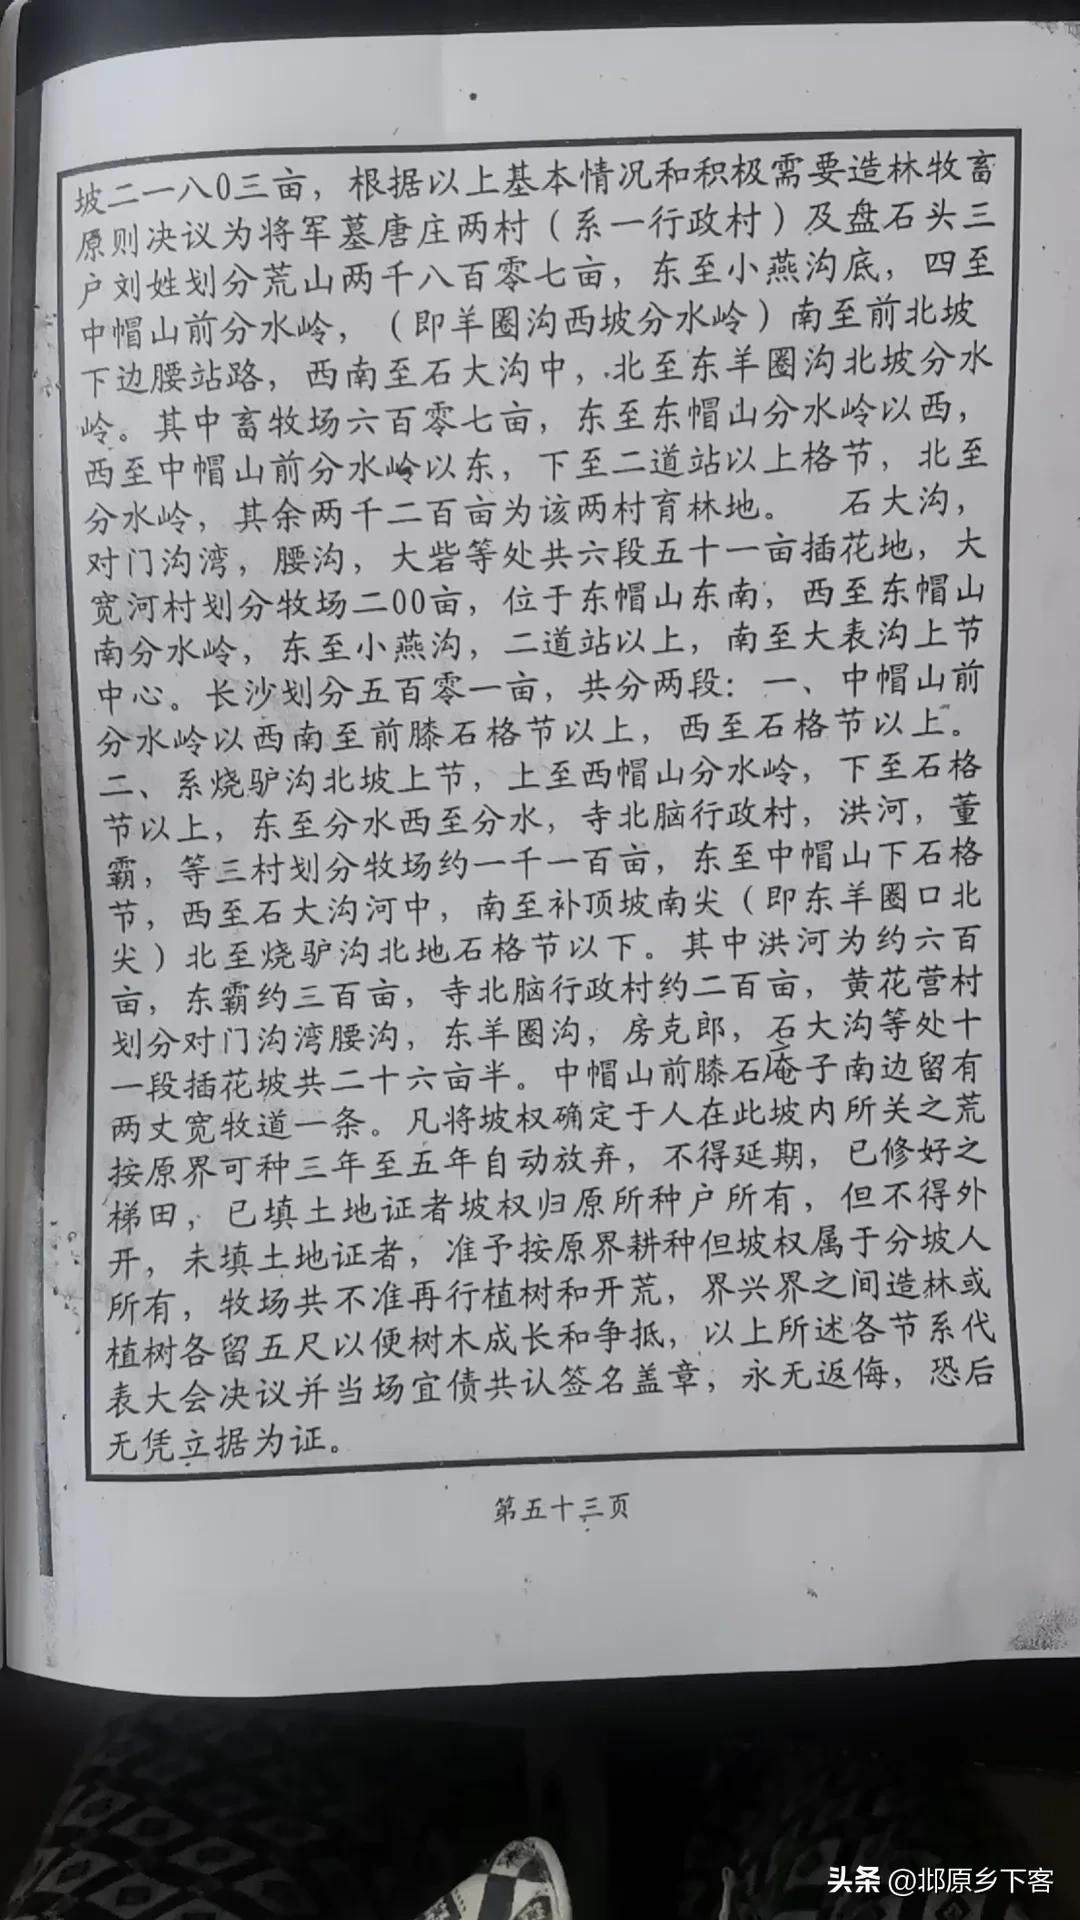 坡二一八0三亩，根据以上基本情况和积极需要造林牧畜
原则决议为将军墓唐庄两村（系一行政村）及盘石头三
户刘姓划分荒山两千八百零七亩，东至小燕沟底，四至
中帽山前分水岭，（即羊圈沟西坡分水岭）南至前北坡
下边腰站路，西南至石大沟中，北至东羊圈沟北坡分水
岭。其中畜牧场六百零七亩，东至东帽山分水岭以西，
西至中帽山前分水岭以东，下至二道站以上格节，北至
分水岭，其余两千二百亩为该两村育林地。 石大沟，
对门沟湾，腰沟，大砦等处共六段五十一亩插花地，大
宽河村划分牧场二00亩，位于东帽山东南，西至东帽山
南分水岭，东至小燕沟，二道站以上，南至大表沟上节
中心。长沙划分五百零一亩，共分两段：一、中帽山前
分水岭以西南至前膝石格节以上，西至石格节以上。
二、系烧驴沟北坡上节，上至西帽山分水岭，下至石格
节以上，东至分水西至分水，寺北脑行政村，洪河，董
霸，等三村划分牧场约一千一百亩，东至中帽山下石格
节，西至石大沟河中，南至补顶坡南尖（即东羊圈口北
尖）北至烧驴沟北地石格节以下。其中洪河为约六百
亩，东霸约三百亩，寺北脑行政村约二百亩，黄花营村
划分对门沟湾腰沟，东羊圈沟，房克郎，石大沟等处十
一段插花坡共二十六亩半。中帽山前膝石庵子南边留有
两丈宽牧道一条。凡将坡权确定于人在此坡内所关之荒
按原界可种三年至五年自动放弃，不得延期，已修好之
梯田，已填土地证者坡权归原所种户所有，但不得外
开，未填土地证者，准予按原界耕种但坡权属于分坡人
所有，牧场共不准再行植树和开荒，界兴界之间造林或
植树各留五尺以便树木成长和争抵，以上所述各节系代
表大会决议并当场宜债共认签名盖章，永无返侮，恐后
无凭立据为证。
第五十三页
头条 @邶原乡下客